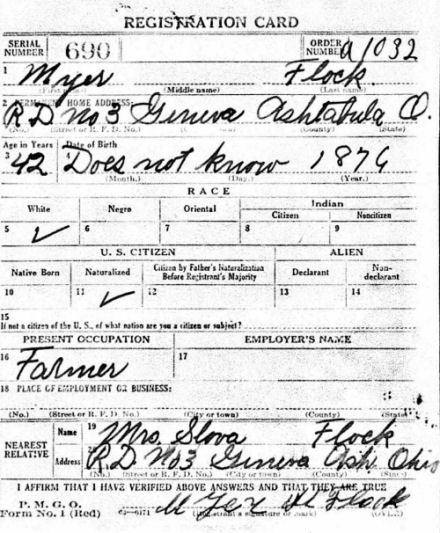 REGISTRATION CARD
SERIAL NUMBER 690 ORDER NUMBER A1032
1 Myer Flock.
(First name) (Middle name) (Last name)
2 PERMANENT HOME ADDRESS:
R D No 3 Geneva Ashtabula O.
(No.) (Street or R. F. D. No.) (County) (State)
Age in Years Date of Birth
3 42 4 Does not know 1876
(Month.) (Day.) (Year.)
RACE
White Negro Oriental Indian
Citizen Noncitizen
5 ✓ 6 7 8 9
U. S. CITIZEN ALIEN
Native Born Naturalized Citizen by Father's Naturalization Before Registrant's Majority Declarant Non-declarant
10 11 ✓ 12 13 14
15
If not a citizen of the U. S., of what nation are you a citizen or subject?
PRESENT OCCUPATION EMPLOYER'S NAME
16 Farmer 17
18 PLACE OF EMPLOYMENT OR BUSINESS:
(No.) (Street or R. F. D. No.) (City or town) (County) (State)
NEAREST RELATIVE Name 19 Mrs. Slova Flock
Address R D No3 Geneva Ash. Ohio
(No.) (Street or R. F. D. No.) (City or town) (County) (State)
I AFFIRM THAT I HAVE VERIFIED ABOVE ANSWERS AND THAT THEY ARE TRUE
P. M. G. O.
Form No. 1 (Red) Flock
(Registrant's signature or mark) (OVER)